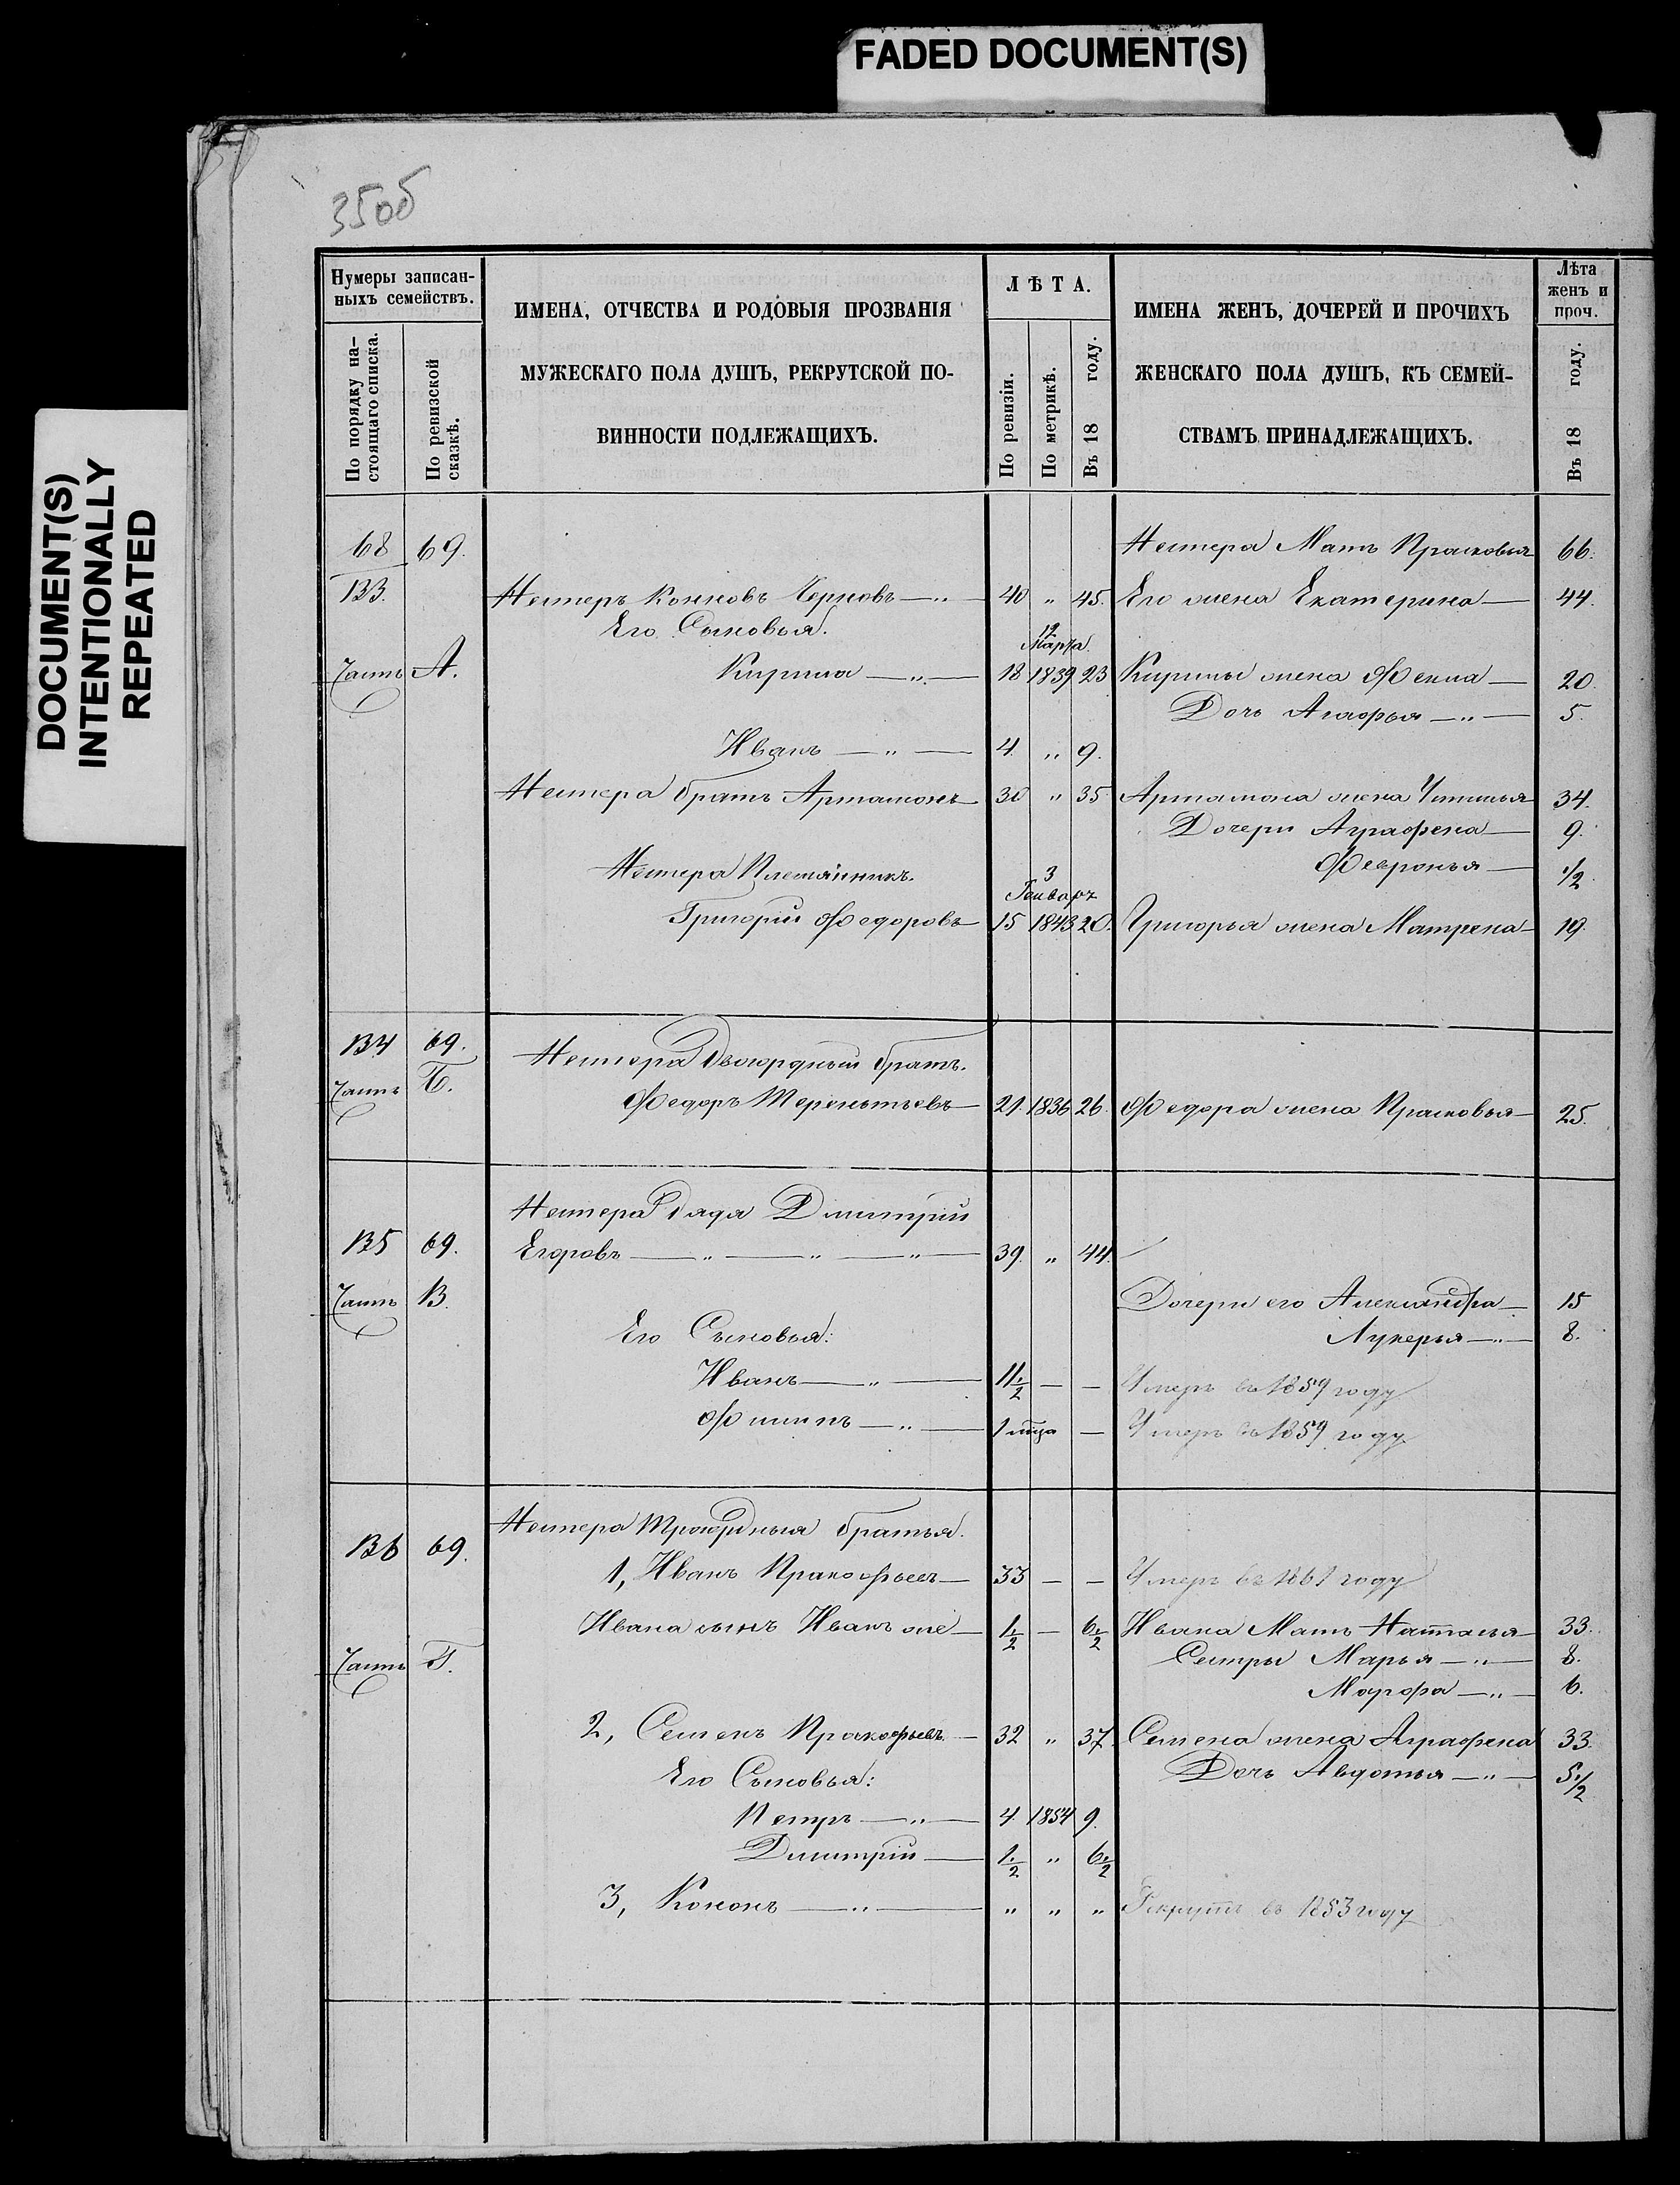 FADED DOCUMENT(S)
DOCUMENT(S)
INTENTIONALLY
REPEATED
35об
Нумеры записан-
ныхъ семействъ.
По порядку на-
стоящаго списка.
По ревизской
сказкѣ.
ИМЕНА, ОТЧЕСТВА И РОДОВЫЯ ПРОЗВАНІЯ
МУЖЕСКАГО ПОЛА ДУШЪ, РЕКРУТСКОЙ ПО-
ВИННОСТИ ПОДЛЕЖАЩИХЪ.
ЛѢТА.
По ревизіи.
По метрикѣ.
Въ 18 году.
ИМЕНА ЖЕНЪ, ДОЧЕРЕЙ И ПРОЧИХЪ
ЖЕНСКАГО ПОЛА ДУШЪ, КЪ СЕМЕЙ-
СТВАМЪ ПРИНАДЛЕЖАЩИХЪ.
Лѣта
женъ и
проч.
Въ 18 году.
68 69. Нестера Мать Прасковья 66.
133. Нестеръ Кононовъ Черновъ — „ — 40 „ 45. Его жена Екатерина — 44.
Его Сыновья. 19 Марта
Часть А. Кирила — „ — 18 1839 23 Кирилы жена Фекла — 20.
Дочь Агафья — „ — 5.
Иванъ — „ — 4. „ 9.
Нестера братъ Артамонъ 30 „ 35. Артамона жена Устинья 34.
Дочери Аграфена — 9.
Февронья — 1/2.
Нестера Племянникъ. 3 Генваря
Григорій Федоровъ 15 1843 20. Григорья жена Матрена 19.
134 69. Нестера Двоюрдный братъ.
Часть Б. Федоръ Терентьевъ 21. 1836 26. Федора жена Прасковья 25.
Нестера Дядя Дмитрій
135 69. Егоровъ — „ — „ — „ — 39. „ 44.
Часть В. Дочери его Александра — 15
Его Сыновья: Лукерья — „ — 8.
Иванъ — „ — 11 1/2 — — Умеръ въ 1859 году
Филипъ — „ — 1 мца — Умеръ въ 1859 году
Нестера Троюрдныя братья.
136 69. 1, Иванъ Пракофьевъ — 33 — — Умеръ въ 1861 году
Ивана сынъ Иванъ же — 1/2 — 6 1/2 Ивана Мать Наталья 33.
Часть Г. Сестры Марья — „ — 8.
Марфа — „ — 6.
2, Семенъ Пракофьевъ — 32 „ 37. Семена жена Аграфена 33.
Его Сыновья: Дочь Авдотья — „ — 5 1/2
Петръ — „ — 4 1854 9.
Дмитрій — 1 1/2 „ 6 1/2
3, Кононъ — „ — „ „ „ Рекрутъ въ 1853 году